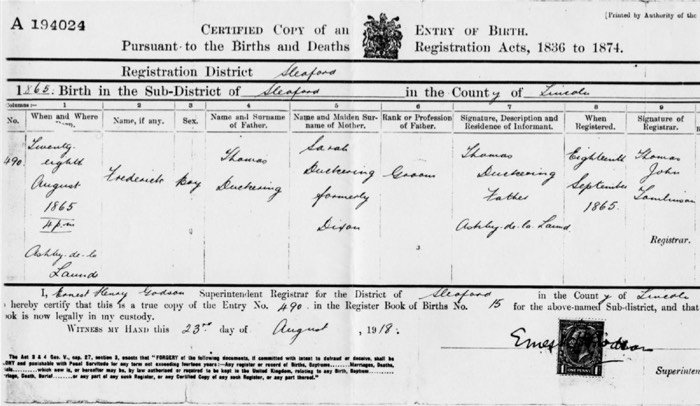 A 194024
[Printed by Authority of the
CERTIFIED COPY of an ENTRY OF BIRTH.
Pursuant to the Births and Deaths Registration Acts, 1836 to 1874.
Registration District Sleaford
1865. Birth in the Sub-District of Sleaford in the County of Lincoln
Columns:— 1 2 3 4 5 6 7 8 9
No. When and Where Born. Name, if any. Sex. Name and Surname of Father. Name and Maiden Surname of Mother. Rank or Profession of Father. Signature, Description and Residence of Informant. When Registered. Signature of Registrar.
490.
Twenty
eighth
August
1865
4 p.m
Ashby-de-la
Laund
Frederick
Boy
Thomas
Duckering
Sarah
Duckering
formerly
Dixon
Groom
Thomas
Duckering
Father
Ashby-de-la-Laund
Eighteenth
September
1865.
Thomas
John
Tomlinson
Registrar.
I, Ernest Henry Godson Superintendent Registrar for the District of Sleaford in the County of Lincoln
hereby certify that this is a true copy of the Entry No. 490. in the Register Book of Births No. 15 for the above-named Sub-district, and that
ok is now legally in my custody.
WITNESS MY HAND this 23rd day of August, 1918.
Ernest H Godson
Superinten
ONE PENNY
The Act 3 & 4 Geo. V., cap. 27, section 3, enacts that "FORGERY of the following documents, if committed with intent to defraud or deceive, shall be
and punishable with Penal Servitude for any term not exceeding fourteen years:—Any register or record of Births, Baptisms......Marriages, Deaths,
which now is, or hereafter may be, by law authorised or required to be kept in the United Kingdom, relating to any Birth, Baptism
riage, Death, Burial or any part of any such Register, or any Certified Copy of any such Register, or any part thereof."